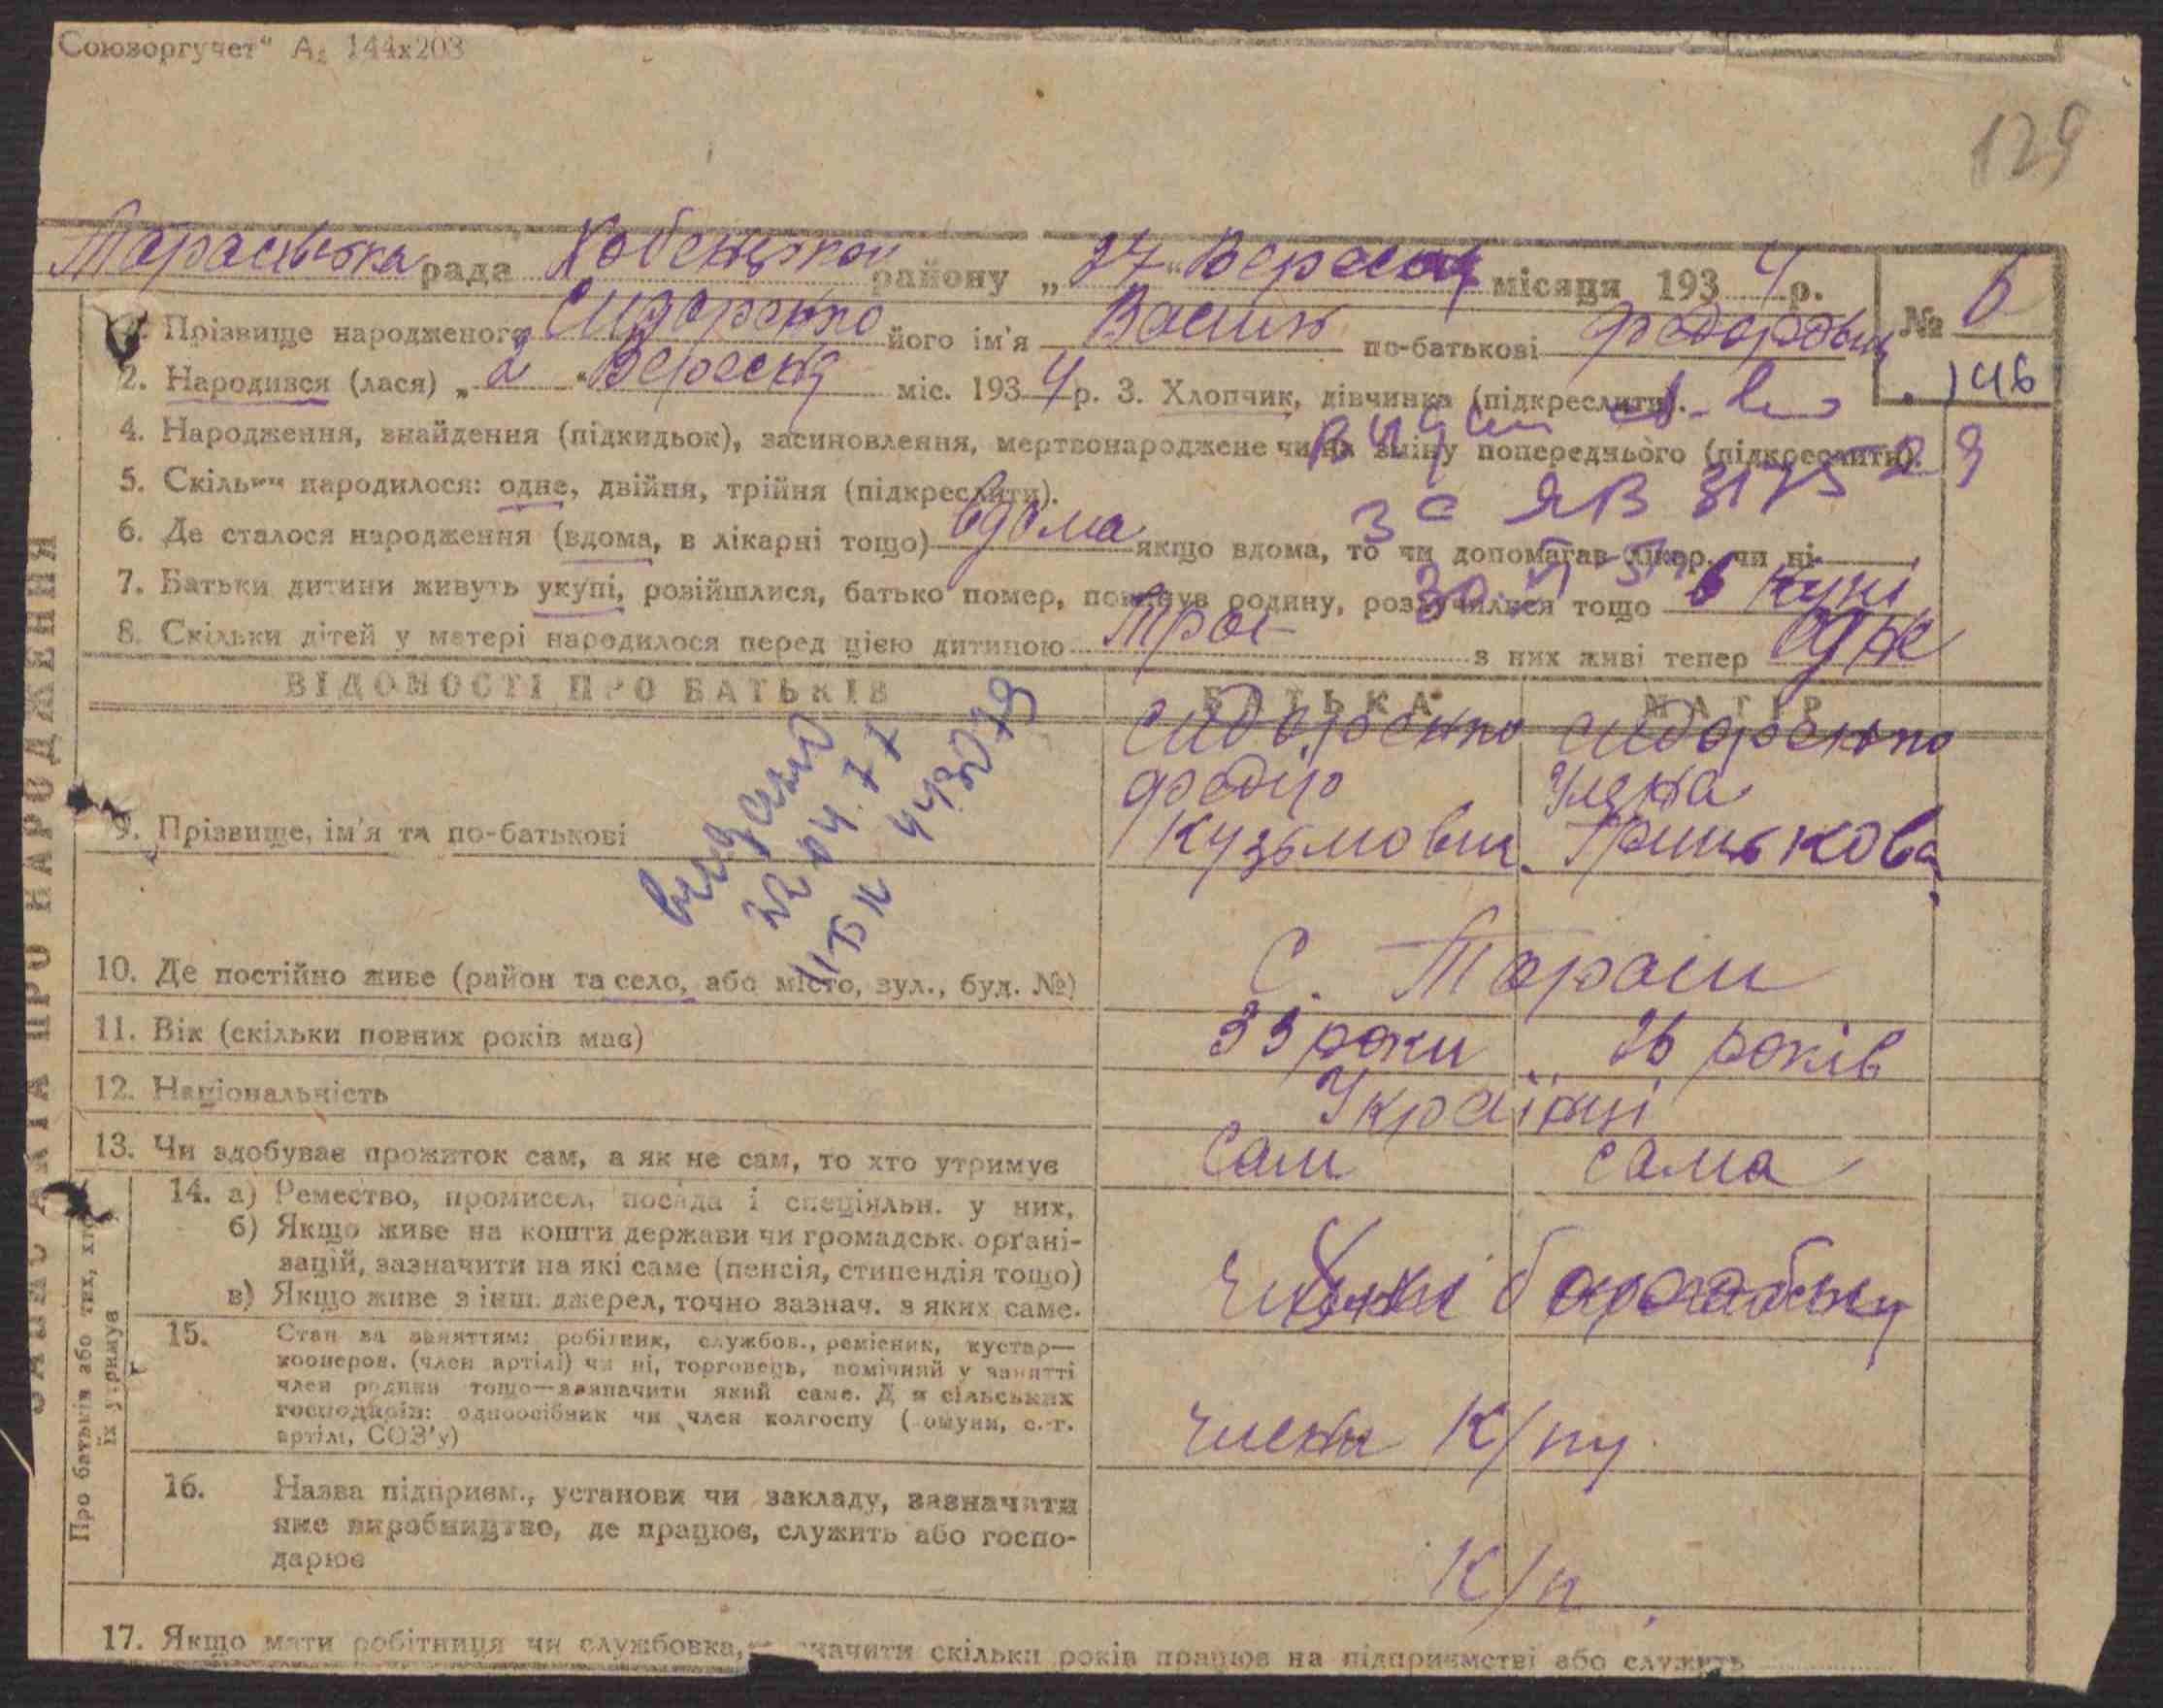 Союзоргучет" А₅ 144х203
129
Тарасівська рада Хабенської району „27" Вересня місяця 1934 р.
№ 6
1. Прізвище народженого Сидоренко його ім'я Василь по-батькові Федорович
146
2. Народився (лася) „2" Вересня міс. 1934 р. 3. Хлопчик, дівчинка (підкреслити).
4. Народження, знайдення (підкидьок), засиновлення, мертвонароджене чи на зміну попереднього (підкреслити).
5. Скільки народилося: одне, двійня, трійня (підкреслити).
6. Де сталося народження (вдома, в лікарні тощо) вдома якщо вдома, то чи допомагав лікар, чи ні
7. Батьки дитини живуть укупі, розійшлися, батько помер, покинув родину, розлучилися тощо в купі
8. Скільки дітей у матері народилося перед цією дитиною Троє з них живі тепер одне
ЗАПИС АКТА ПРО НАРОДЖЕННЯ
ВІДОМОСТІ ПРО БАТЬКІВ БАТЬКА МАТІР
видано
22 04. 77
443079
9. Прізвище, ім'я та по-батькові
Сидоренко Федір Кузьмович
Сидоренко Уляна Гринькова
10. Де постійно живе (район та село, або місто, вул., буд. №) С. Тараси
11. Вік (скільки повних років має) 33 роки 26 років
12. Національність Українці
13. Чи здобуває прожиток сам, а як не сам, то хто утримує сам сама
Про батьків або тих, хто
їх утримує
14. а) Ремество, промисел, посада і спеціяльн. у них,
б) Якщо живе на кошти держави чи громадськ. орґані-
зацій, зазначити на які саме (пенсія, стипендія тощо)
в) Якщо живе з інш. джерел, точно зазнач. з яких саме.
15. Стан за заняттям: робітник, службов., ремісник, кустар—
кооперов. (член артілі) чи ні, торговець, помічний у занятті
член родини тощо—зазначити який саме. Для сільських
господарів: одноосібник чи член колгоспу (комуни, с.-г.
артілі, СОЗ'у)
члени К/пу
16. Назва підприєм., установи чи закладу, зазначити
яке виробництво, де працює, служить або госпо-
дарює
К/п.
17. Якщо мати робітниця чи службовка, зазначити скільки років працює на підприємстві або служить